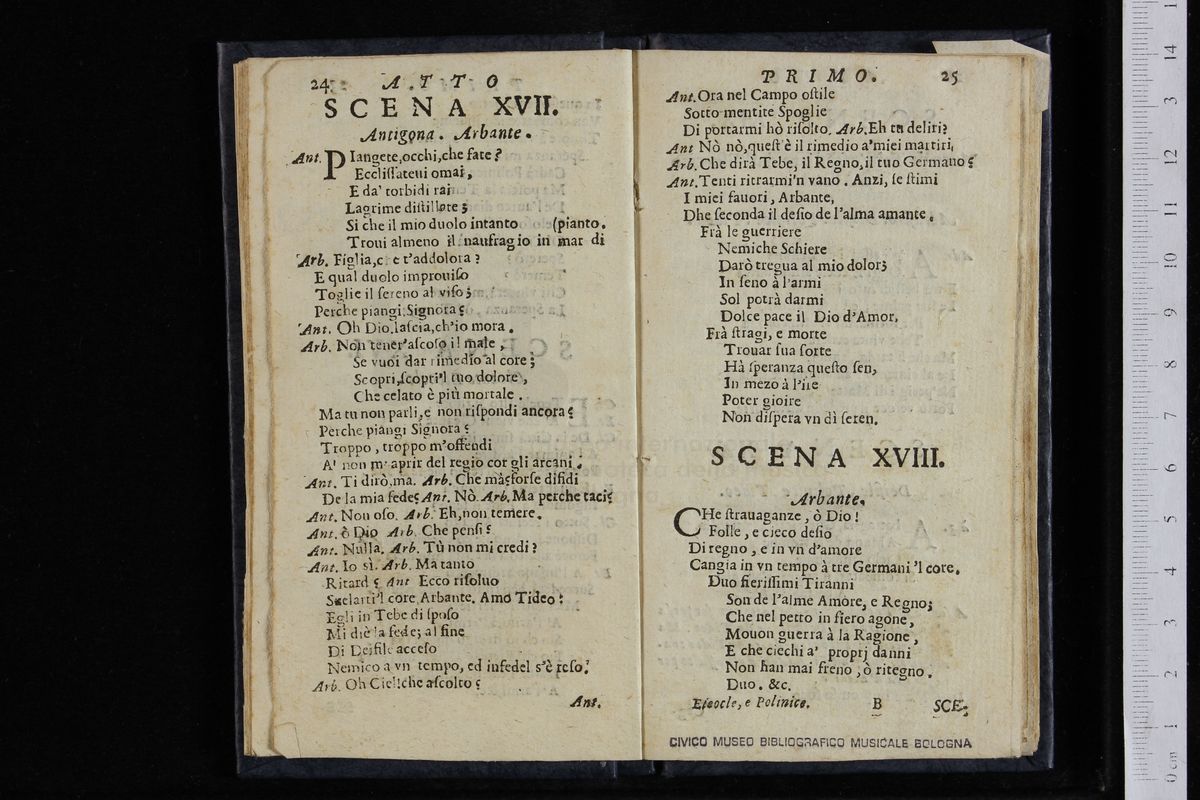 24 ATTO
SCENA XVII.
Antigona. Arbante.
Ant. PIangete, occhi, che fate?
Eccliſſateui omai,
E da' torbidi rai
Lagrime diſtillate;
Si che il mio duolo intanto (pianto.
Troui almeno il naufragio in mar di
Arb. Figlia, e t'addolora?
E qual duolo improuiſo
Toglie il ſereno al viſo;
Perche piangi Signora?
Ant. Oh Dio, laſcia, ch'io mora.
Arb. Non tener'aſcoſo il male,
Se vuoi dar rimedio al core;
Scopri, ſcopri'l tuo dolore,
Che celato è più mortale.
Ma tu non parli, e non riſpondi ancora?
Perche piangi Signora?
Troppo, troppo m'offendi
A' non m'aprir del regio cor gli arcani.
Ant. Ti dirò, ma. Arb. Che mà? forſe difidi
De la mia fede? Ant. Nò. Arb. Ma perche taci?
Ant. Non oſo. Arb. Eh, non temere.
Ant. ò Dio Arb. Che penſi?
Ant. Nulla. Arb. Tù non mi credi?
Ant. Io sì. Arb. Ma tanto
Ritard? Ant Ecco riſoluo
Suelarti'l core Arbante. Amo Tideo:
Egli in Tebe di ſpoſo
Mi diè la fede; al fine
Di Deifile acceſo
Nemico a vn tempo, ed infedel s'è reſo.
Arb. Oh Ciel! che aſcolto?
Ant.
PRIMO. 25
Ant. Ora nel Campo oſtile
Sotto mentite Spoglie
Di portarmi hò riſolto. Arb. Eh tu deliri?
Ant Nò nò, queſt'è il rimedio a'miei martiri,
Arb. Che dirà Tebe, il Regno, il tuo Germano?
Ant. Tenti ritrarmi'n vano. Anzi, ſe ſtimi
I miei fauori, Arbante,
Dhe ſeconda il deſio de l'alma amante.
Frà le guerriere
Nemiche Schiere
Darò tregua al mio dolor;
In ſeno à l'armi
Sol potrà darmi
Dolce pace il Dio d'Amor,
Frà ſtragi, e morte
Trouar ſua ſorte
Hà ſperanza queſto ſen,
In mezo à l'ire
Poter gioire
Non diſpera vn dì ſeren.
SCENA XVIII.
Arbante.
CHe ſtrauaganze, ò Dio!
Folle, e cieco deſio
Di regno, e in vn d'amore
Cangia in vn tempo à tre Germani 'l core.
Duo fieriſſimi Tiranni
Son de l'alme Amore, e Regno;
Che nel petto in fiero agone,
Mouon guerra à la Ragione,
E che ciechi a' proprj danni
Non han mai freno, ò ritegno.
Duo. &c.
Eteocle, e Polinice. B SCE-
CIVICO MUSEO BIBLIOGRAFICO MUSICALE BOLOGNA